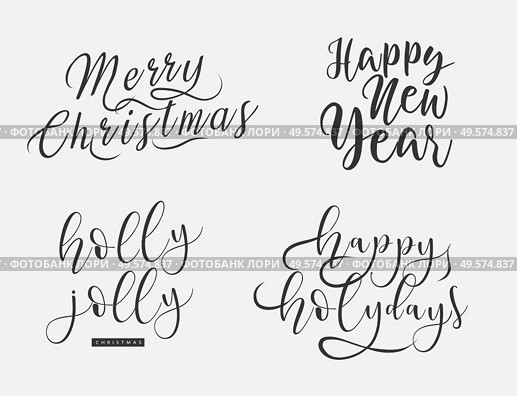 Merry
Christmas
Happy
New
Year
holly
jolly
CHRISTMAS
happy
holydays
· ФОТОБАНК ЛОРИ · 49.574.837 · ФОТОБАНК ЛОРИ · 49.574.837 · ФОТОБАНК ЛОРИ · 49.574.837
7 · ФОТОБАНК ЛОРИ · 49.574.837 · ФОТОБАНК ЛОРИ · 49.574.837 · ФОТОБАНК ЛОРИ · 49.574.837